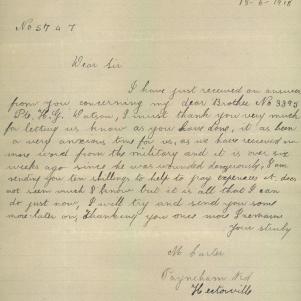 18-6-1918
No 5747
Dear Sir
I have just received an answer
from you concerning my dear Brother No 3395
Pte. H.G. Watson, I must thank you very much
for letting us know as you have done, it as been
a very anxious time for us, as we have received no
more word from the military and it is over six
weeks ago since he was wounded dangerously, I am
sending you ten shillings to help to pay expences it does
not seem much I know but it is all that I can
do just now, I will try and send you some
more later on, Thanking you once more I remain
Yours
M. Carter
Payneham Rd
Hectorville